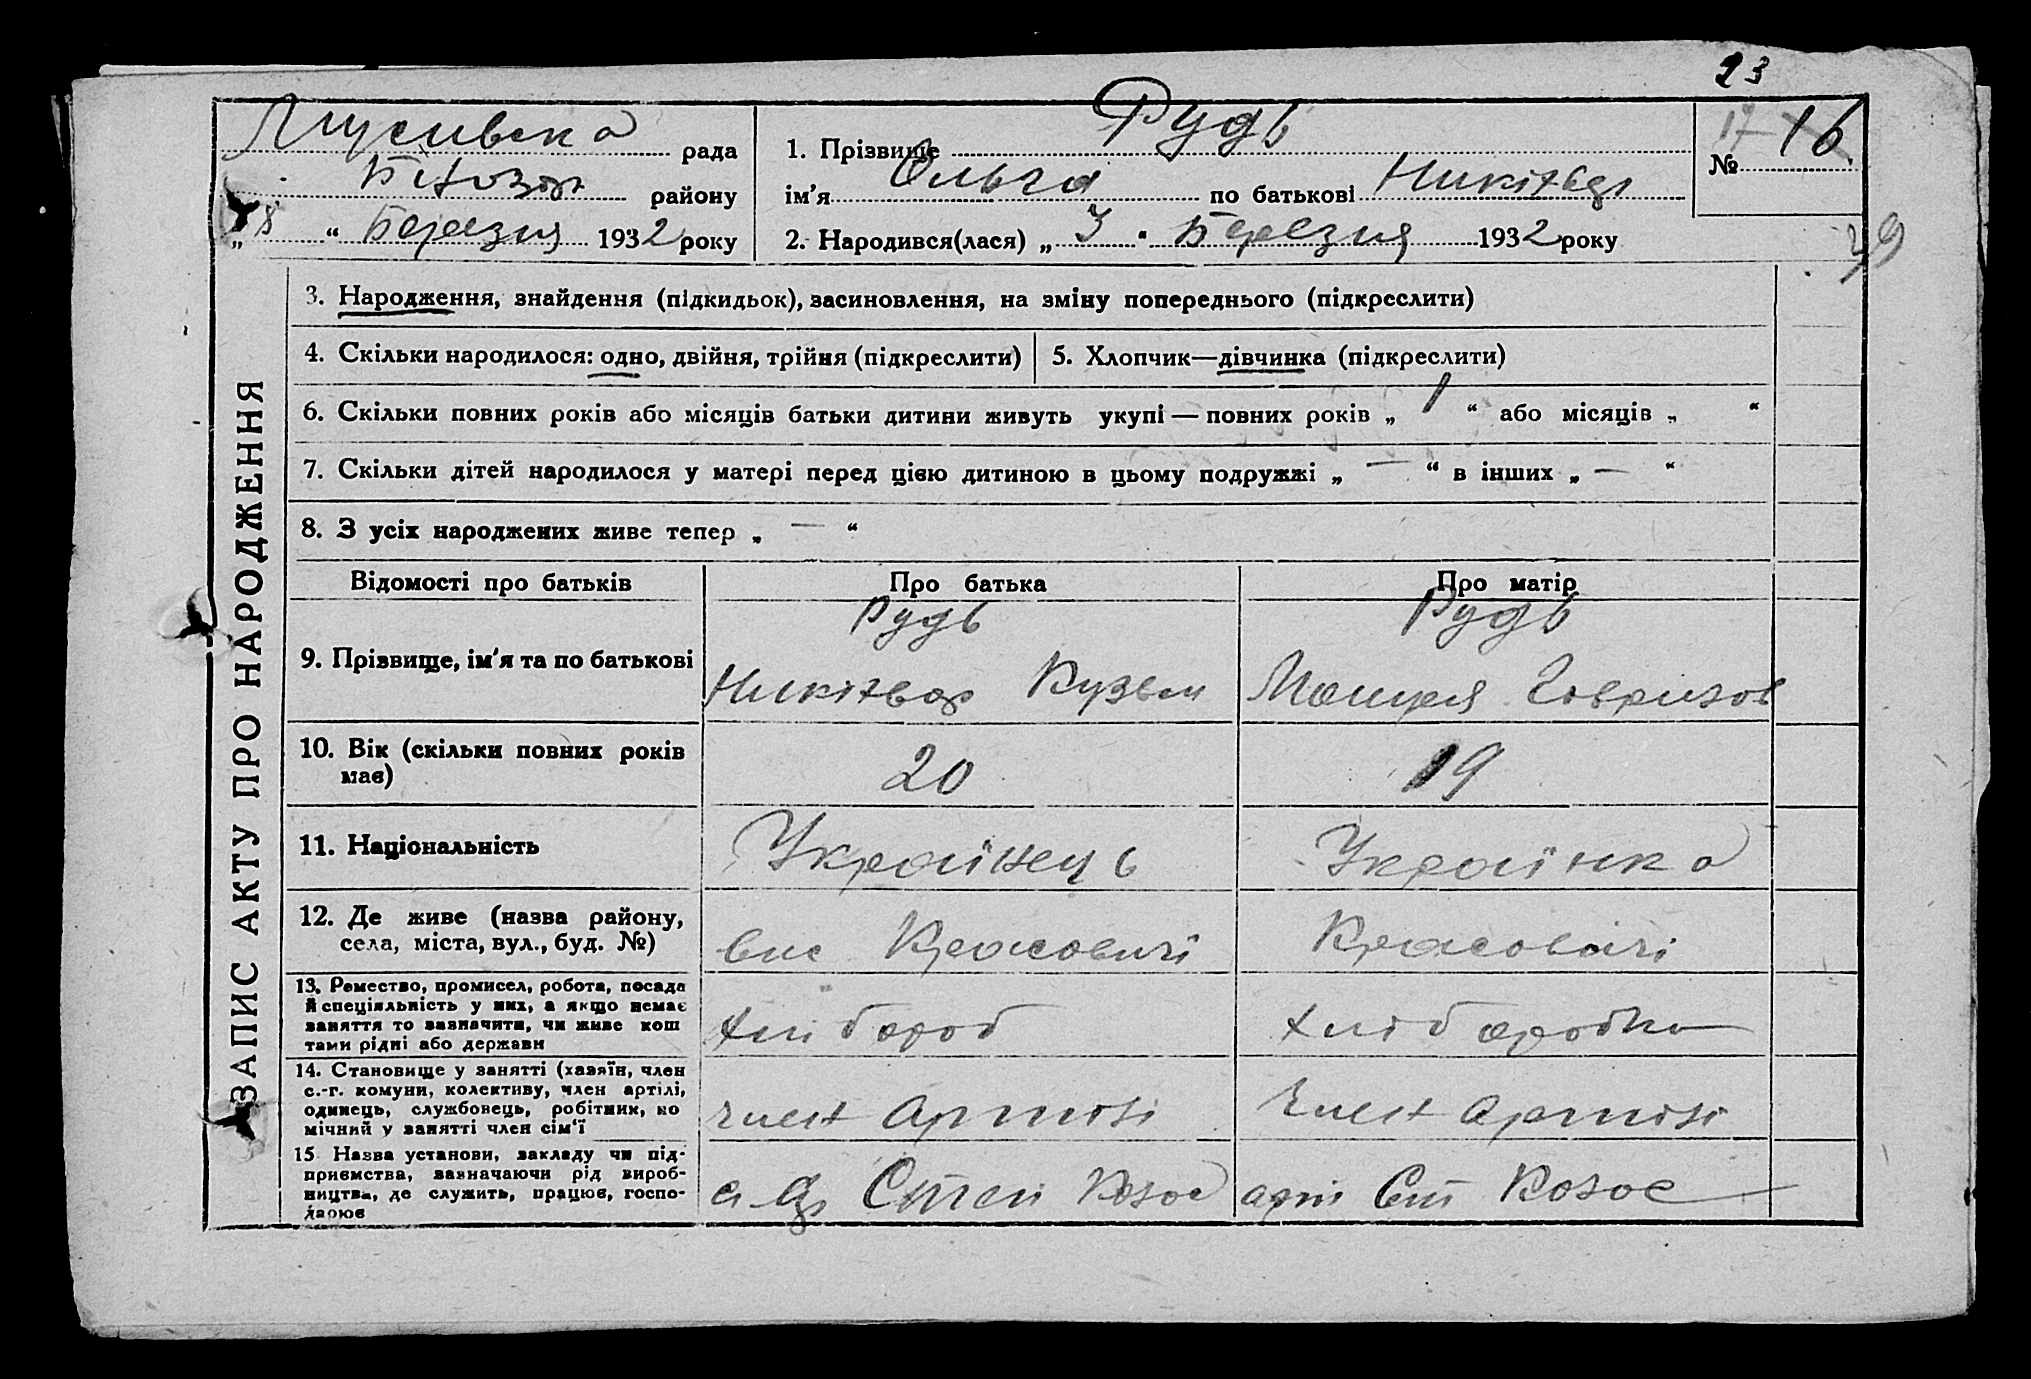 23
рада
1. Прізвище Рудь
№ 17 16
району
ім'я Ольга по батькові
„ 8 “ Березня 1932 року
2. Народився(лася) „ 3 “ Березня 1932 року
79
ЗАПИС АКТУ ПРО НАРОДЖЕННЯ
3. Народження, знайдення (підкидьок), засиновлення, на зміну попереднього (підкреслити)
4. Скільки народилося: одно, двійня, трійня (підкреслити)
5. Хлопчик—дівчинка (підкреслити)
6. Скільки повних років або місяців батьки дитини живуть укупі — повних років „ 1 “ або місяців „ “
7. Скільки дітей народилося у матері перед цією дитиною в цьому подружжі „ — “ в інших „ — “
8. З усіх народжених живе тепер „ — “
Відомості про батьків
Про батька
Про матір
9. Прізвище, ім'я та по батькові
Рудь
Кузьм
Рудь
10. Вік (скільки повних років має)
20
19
11. Національність
Українець
Українка
12. Де живе (назва району, села, міста, вул., буд. №)
Красовичі
Красовичі
13. Ремество, промисел, робота, посада
й спеціяльність у них, а якщо немає
заняття то зазначити, чи живе кош
тами рідні або держави
хлібороб
хліборобка
14. Становище у занятті (хазяїн, член
с.-г. комуни, колективу, член артілі,
одинець, службовець, робітник, по
мічний у занятті член сім'ї
член артілі
член артілі
15 Назва установи, закладу чи під-
приємства, зазначаючи рід вироб-
ництва, де служить, працює, госпо-
дарює